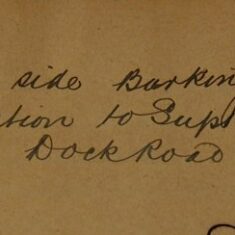 side Barkin
ation to Supt
Dock Road